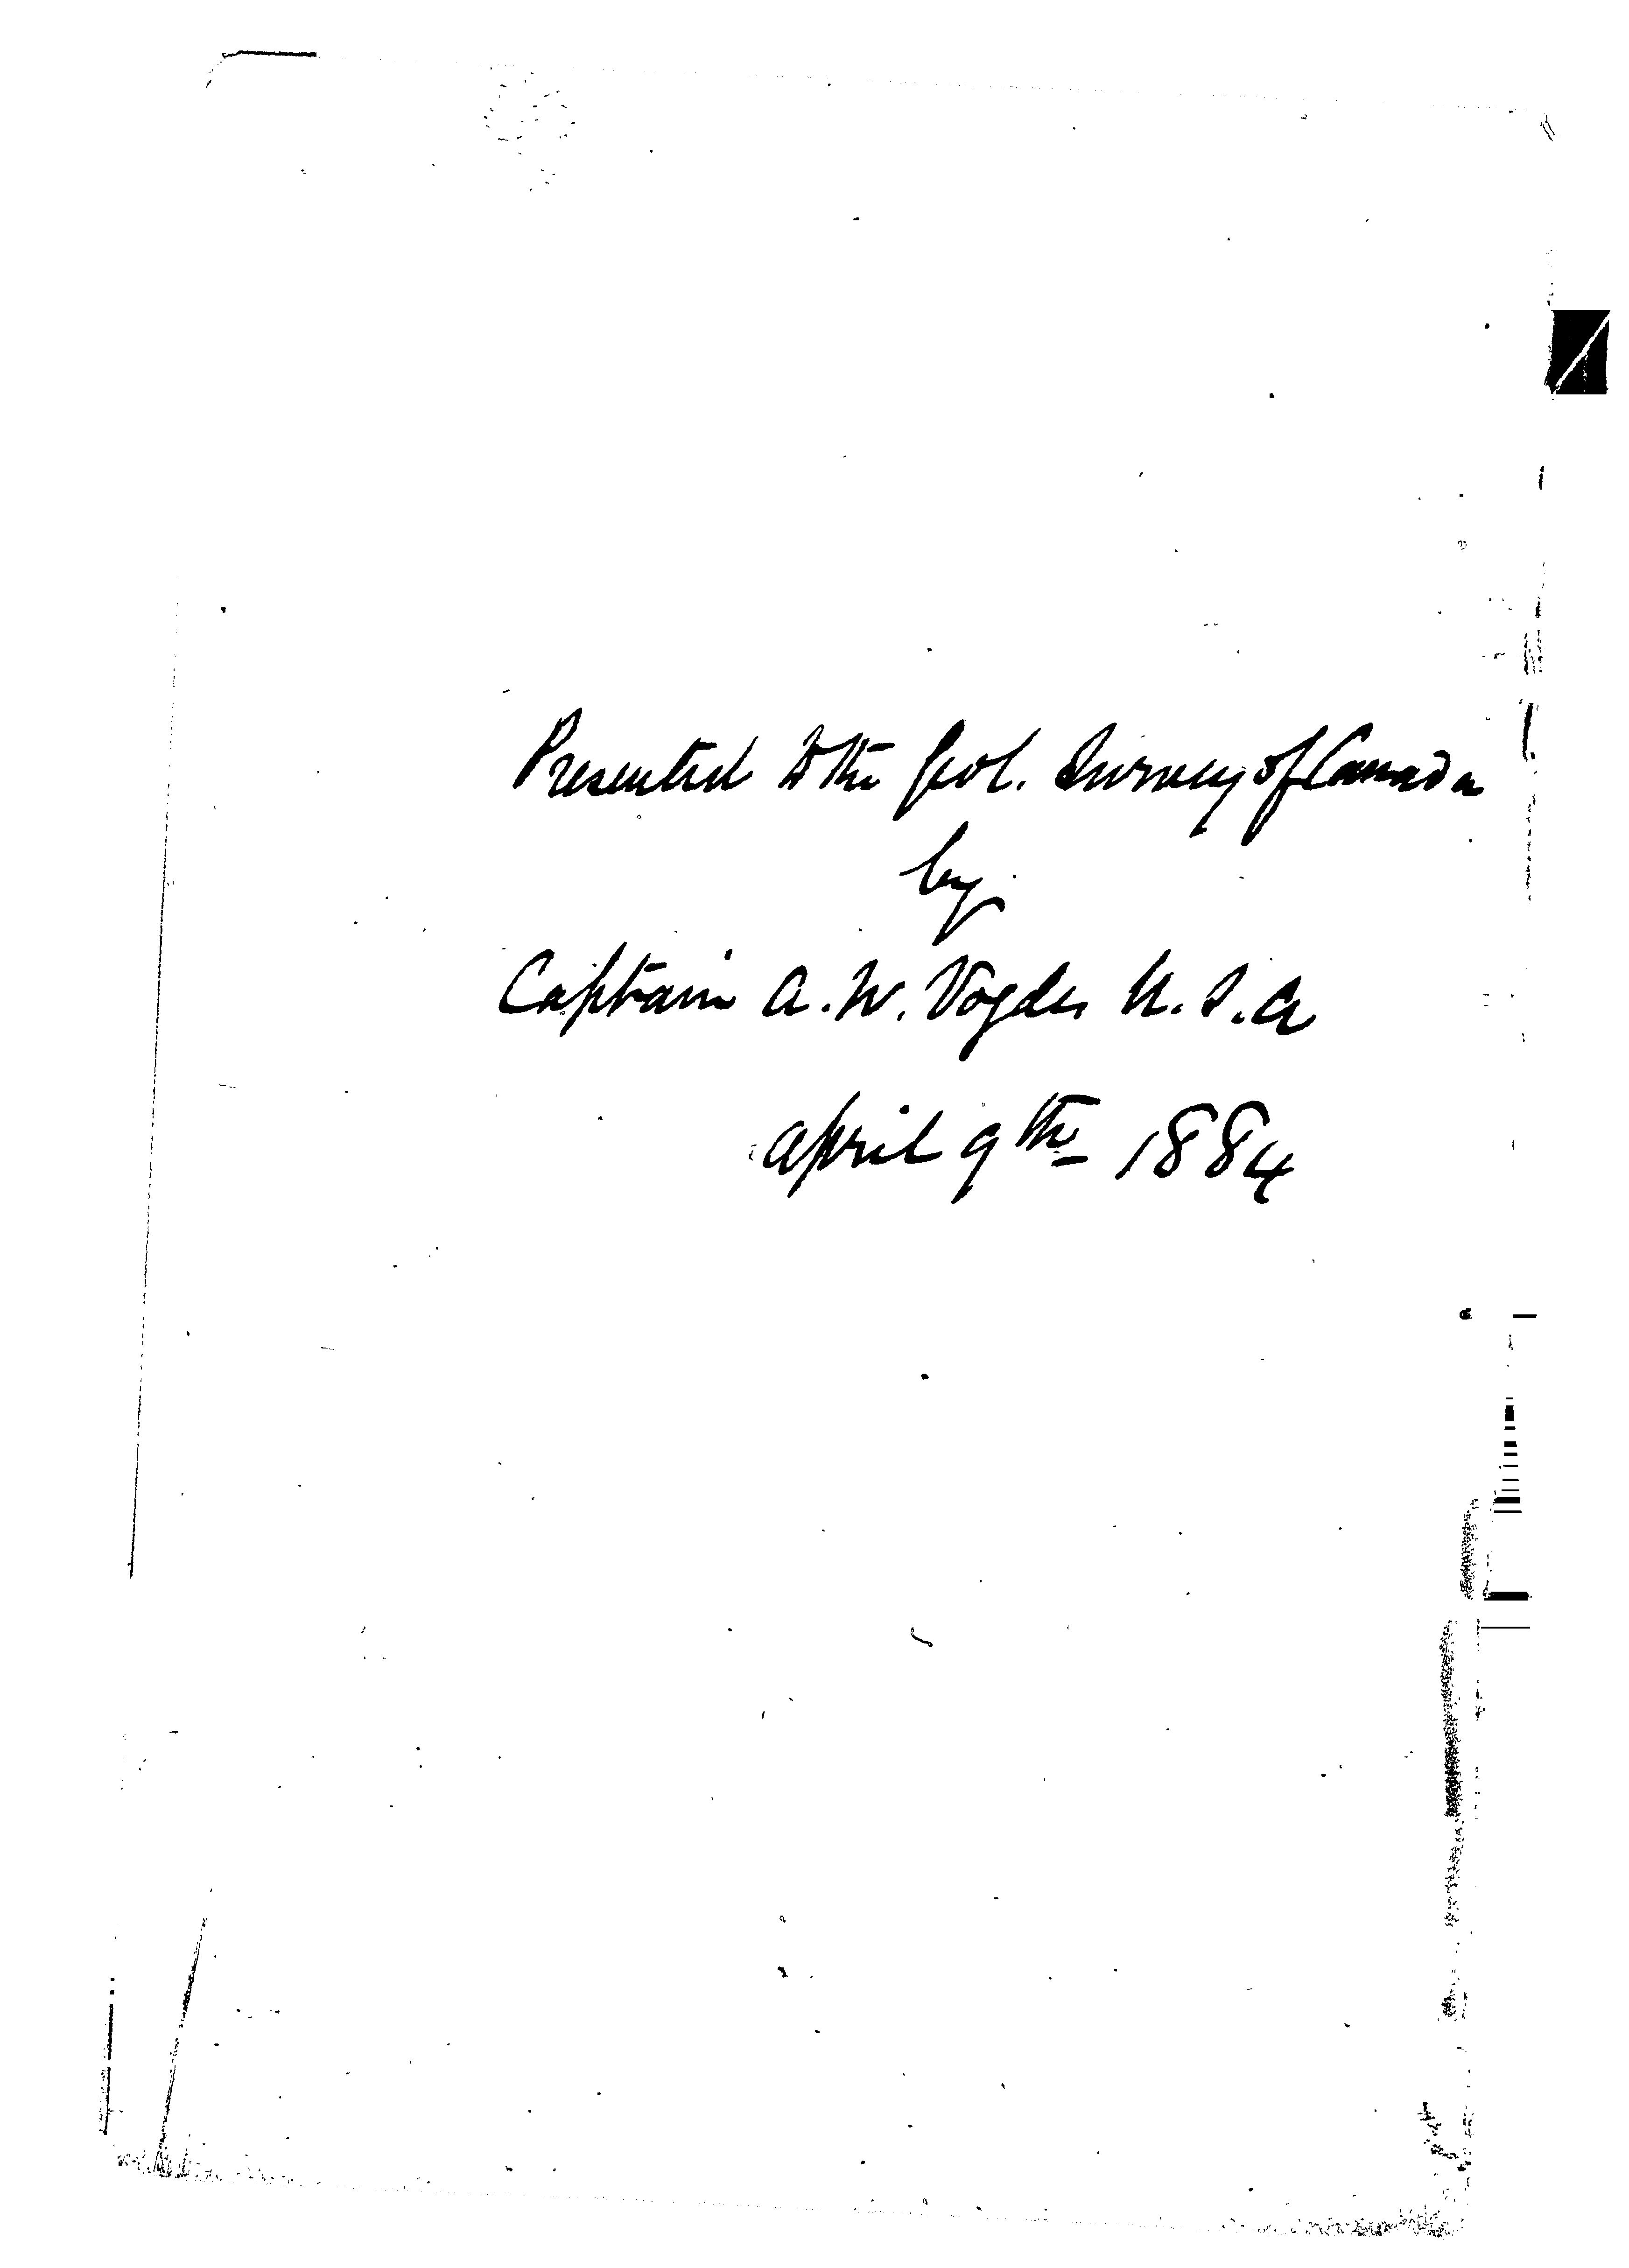 Presented to the Geol. Survey of Canada
by
Captain A. W. Vogdes U. S. A
April 9th 1884